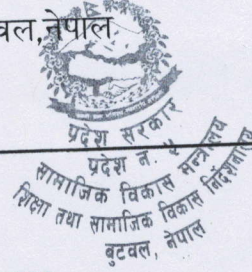 वल,नेपाल
प्रदेश सरकार
प्रदेश न. ५
सामाजिक विकास मन्त्रालय
शिक्षा तथा सामाजिक विकास निर्देशनालय
बुटवल, नेपाल